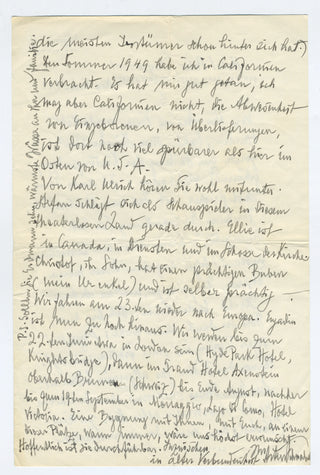 die meisten Irrtümer schon hinter sich hat.)
Den Sommer 1949 habe ich in Californien
verbracht. Es hat mir gut getan, ich
mag aber Californien nicht, die Abwesenheit
von Eingeborenen, von Überlieferungen,
ist dort noch viel spürbarer als hier im
Osten von U.S.A.
Von Karl Ulrich hören Sie wohl mitunter.
Stefan schlägt sich als Schauspieler in diesem
theaterlosen Land gerade durch. Ellie ist
in Canada, in Diensten und im Schosse der Kirche
Christof, ihr Sohn, hat einen prächtigen Buben
(mein Urenkel) und ist selber prächtig.
Wir fahren am 23.ten wieder nach Europa.
ist Ihnen zu hoch hinaus. Wir werden bis zum
22.ten Juni in London sein (Hyde Park Hotel,
Knightsbridge), dann im Grand Hotel Axenstein
oberhalb Brunnen (Schweiz) bis Ende August, nachher
bis zum September in Menaggio, Lago di Como, Hotel
Victoria. Eine Begegnung mit Ihnen, mit Euch, an einem
dieser Plätze, wann immer, wäre uns höchst erwünscht.
Hoffentlich ist sie durchführbar. Inzwischen
in alter Verbundenheit
P.S. Sollten Sie